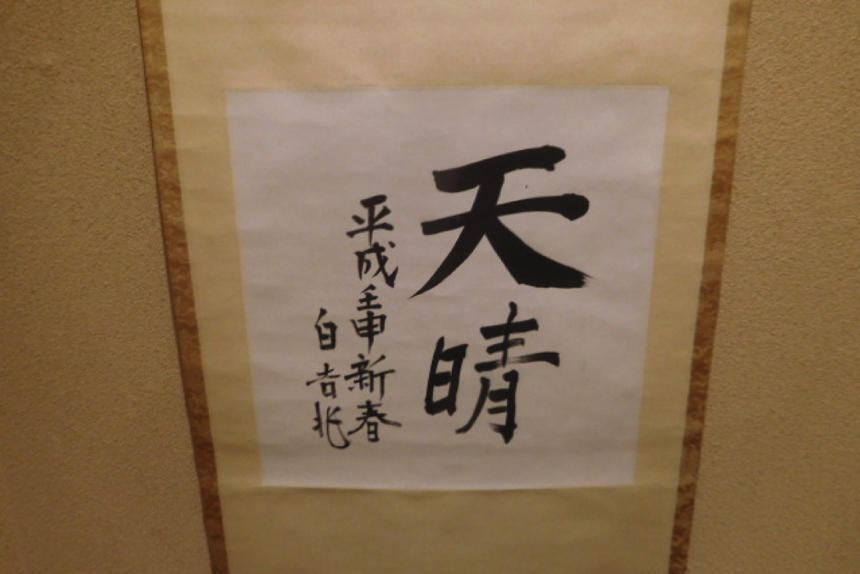 天晴
平成壬申新春
白吉兆